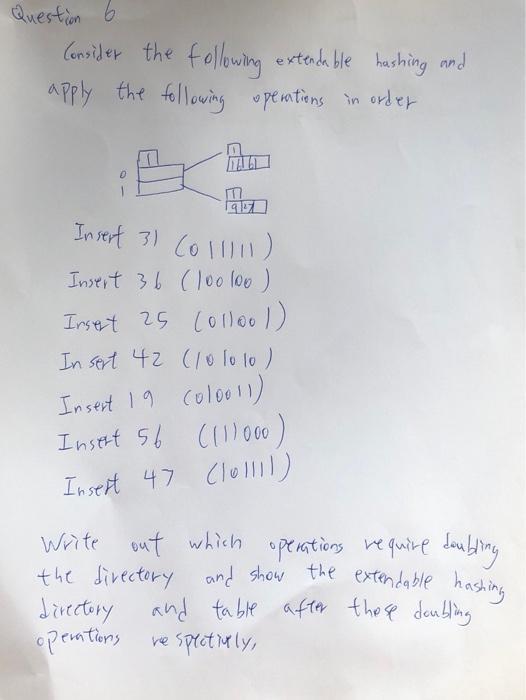 Question 6
Consider the following extendable hashing and
apply the following operations in order
1
1
16 6
0
1
1
9 27
Insert 31 (011111)
Insert 36 (100100)
Insert 25 (011001)
Insert 42 (101010)
Insert 19 (010011)
Insert 56 (111000)
Insert 47 (101111)
Write out which operations require doubling
the directory and show the extendable hashing
directory and table after those doubling
operations respectively,